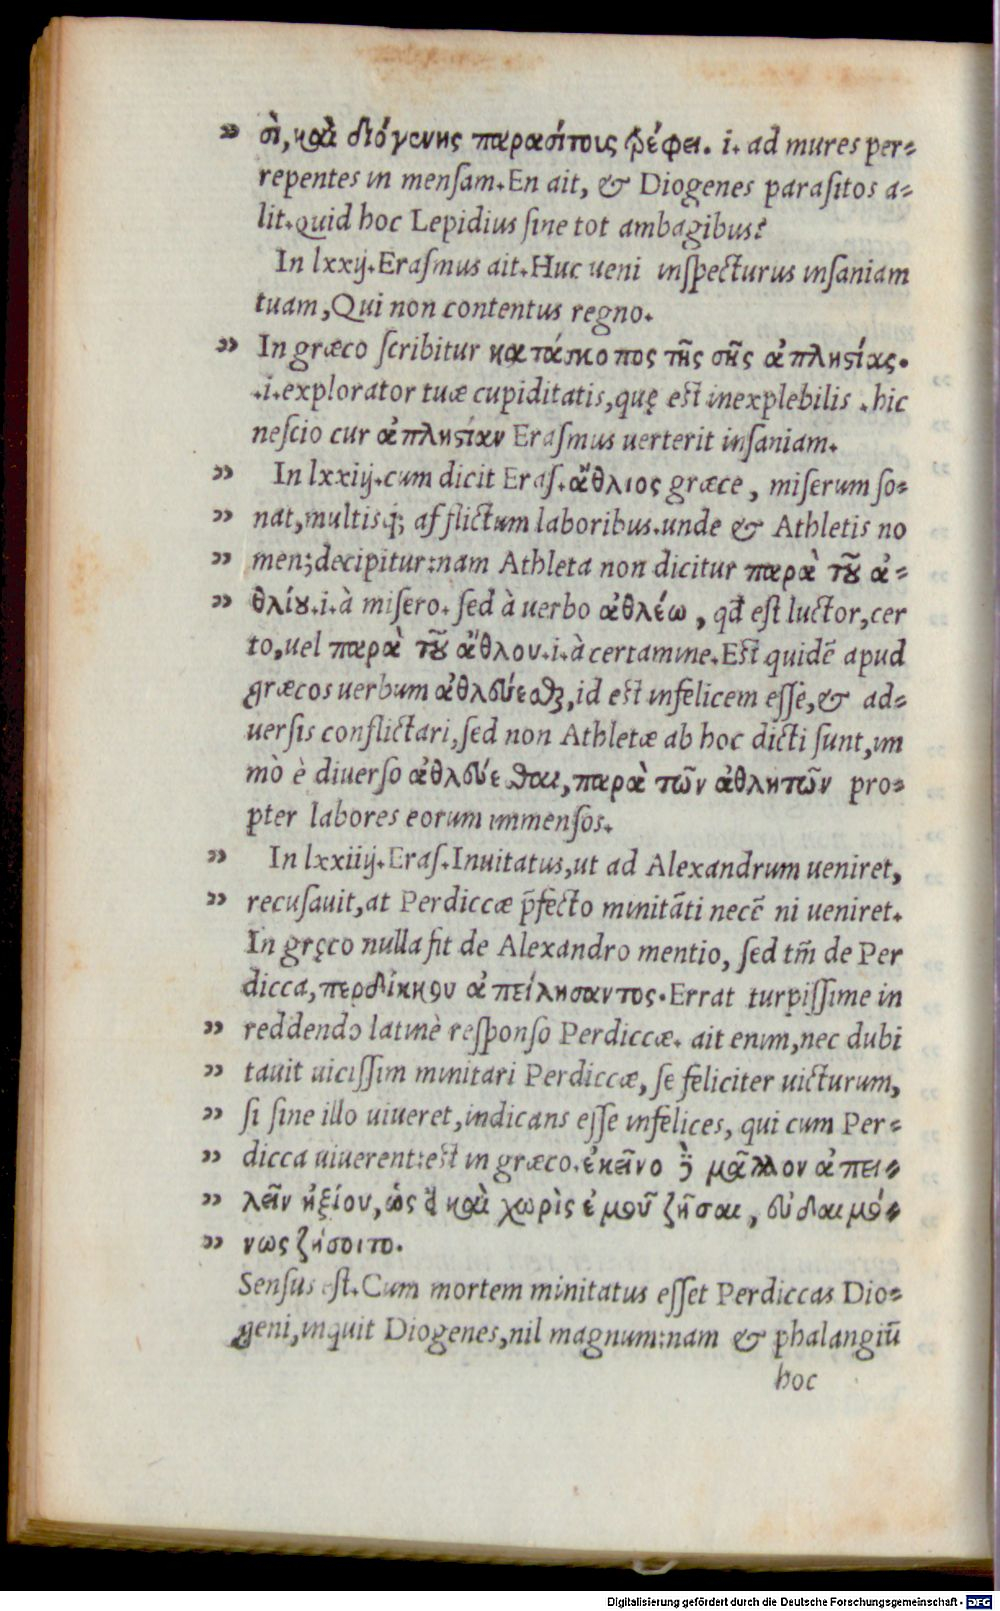 „ σὶ, καὶ διόγενης παρασίτοις τρέφει. i. ad mures per-
repentes in menſam. En ait, & Diogenes paraſitos a-
lit. quid hoc Lepidius ſine tot ambagibus?
In lxxij. Eraſmus ait. Huc ueni inſpecturus inſaniam
tuam, Qui non contentus regno.
„ In græco ſcribitur κατάσκοπος τῆς σῆς ἀπληϛίας.
.i. explorator tuæ cupiditatis, quę eſt inexplebilis . hic
neſcio cur ἀπληϛίαν Eraſmus uerterit inſaniam.
„ In lxxiij. cum dicit Eraſ. ἄθλιος græce, miſerum ſo-
„ nat, multisq́; afflictum laboribus. unde & Athletis no
„ men; decipitur: nam Athleta non dicitur παρὰ τοῦ ἀ-
„ θλίου. i. à miſero. ſed à uerbo ἀθλέω, qđ eſt luctor, cer
to, uel παρὰ τοῦ ἄθλου. i. à certamine. Eſt quidē apud
græcos uerbum ἀθλεύεσθαι, id eſt infelicem eſſe, & ad-
uerſis conflictari, ſed non Athletæ ab hoc dicti ſunt, im
mò è diuerſo ἀθλεύεσθαι, παρὰ τῶν ἀθλητῶν pro-
pter labores eorum immenſos.
„ In lxxiiij. Eraſ. Inuitatus, ut ad Alexandrum ueniret,
„ recuſauit, at Perdiccæ p̄fecto minitāti necē ni ueniret.
In gręco nulla fit de Alexandro mentio, ſed tm̄ de Per
dicca, περδίκκου ἀπείλησαντος. Errat turpiſſime in
„ reddendo latinè reſponſo Perdiccæ. ait enim, nec dubi
„ tauit uiciſſim minitari Perdiccæ, ſe feliciter uicturum,
„ ſi ſine illo uiueret, indicans eſſe infelices, qui cum Per-
„ dicca uiuerent: eſt in græco. ἐκεῖνο δὲ μᾶλλον ἀπει-
„ λεῖν ἠξίου, ὡς εἰ καὶ χωρὶς ἐμοῦ ζῆσαι, εὐδαιμό-
„ νως ζήσοιτο.
Senſus eſt. Cum mortem minitatus eſſet Perdiccas Dio-
geni, inquit Diogenes, nil magnum: nam & phalangiū
hoc
Digitalisierung gefördert durch die Deutsche Forschungsgemeinschaft - DFG